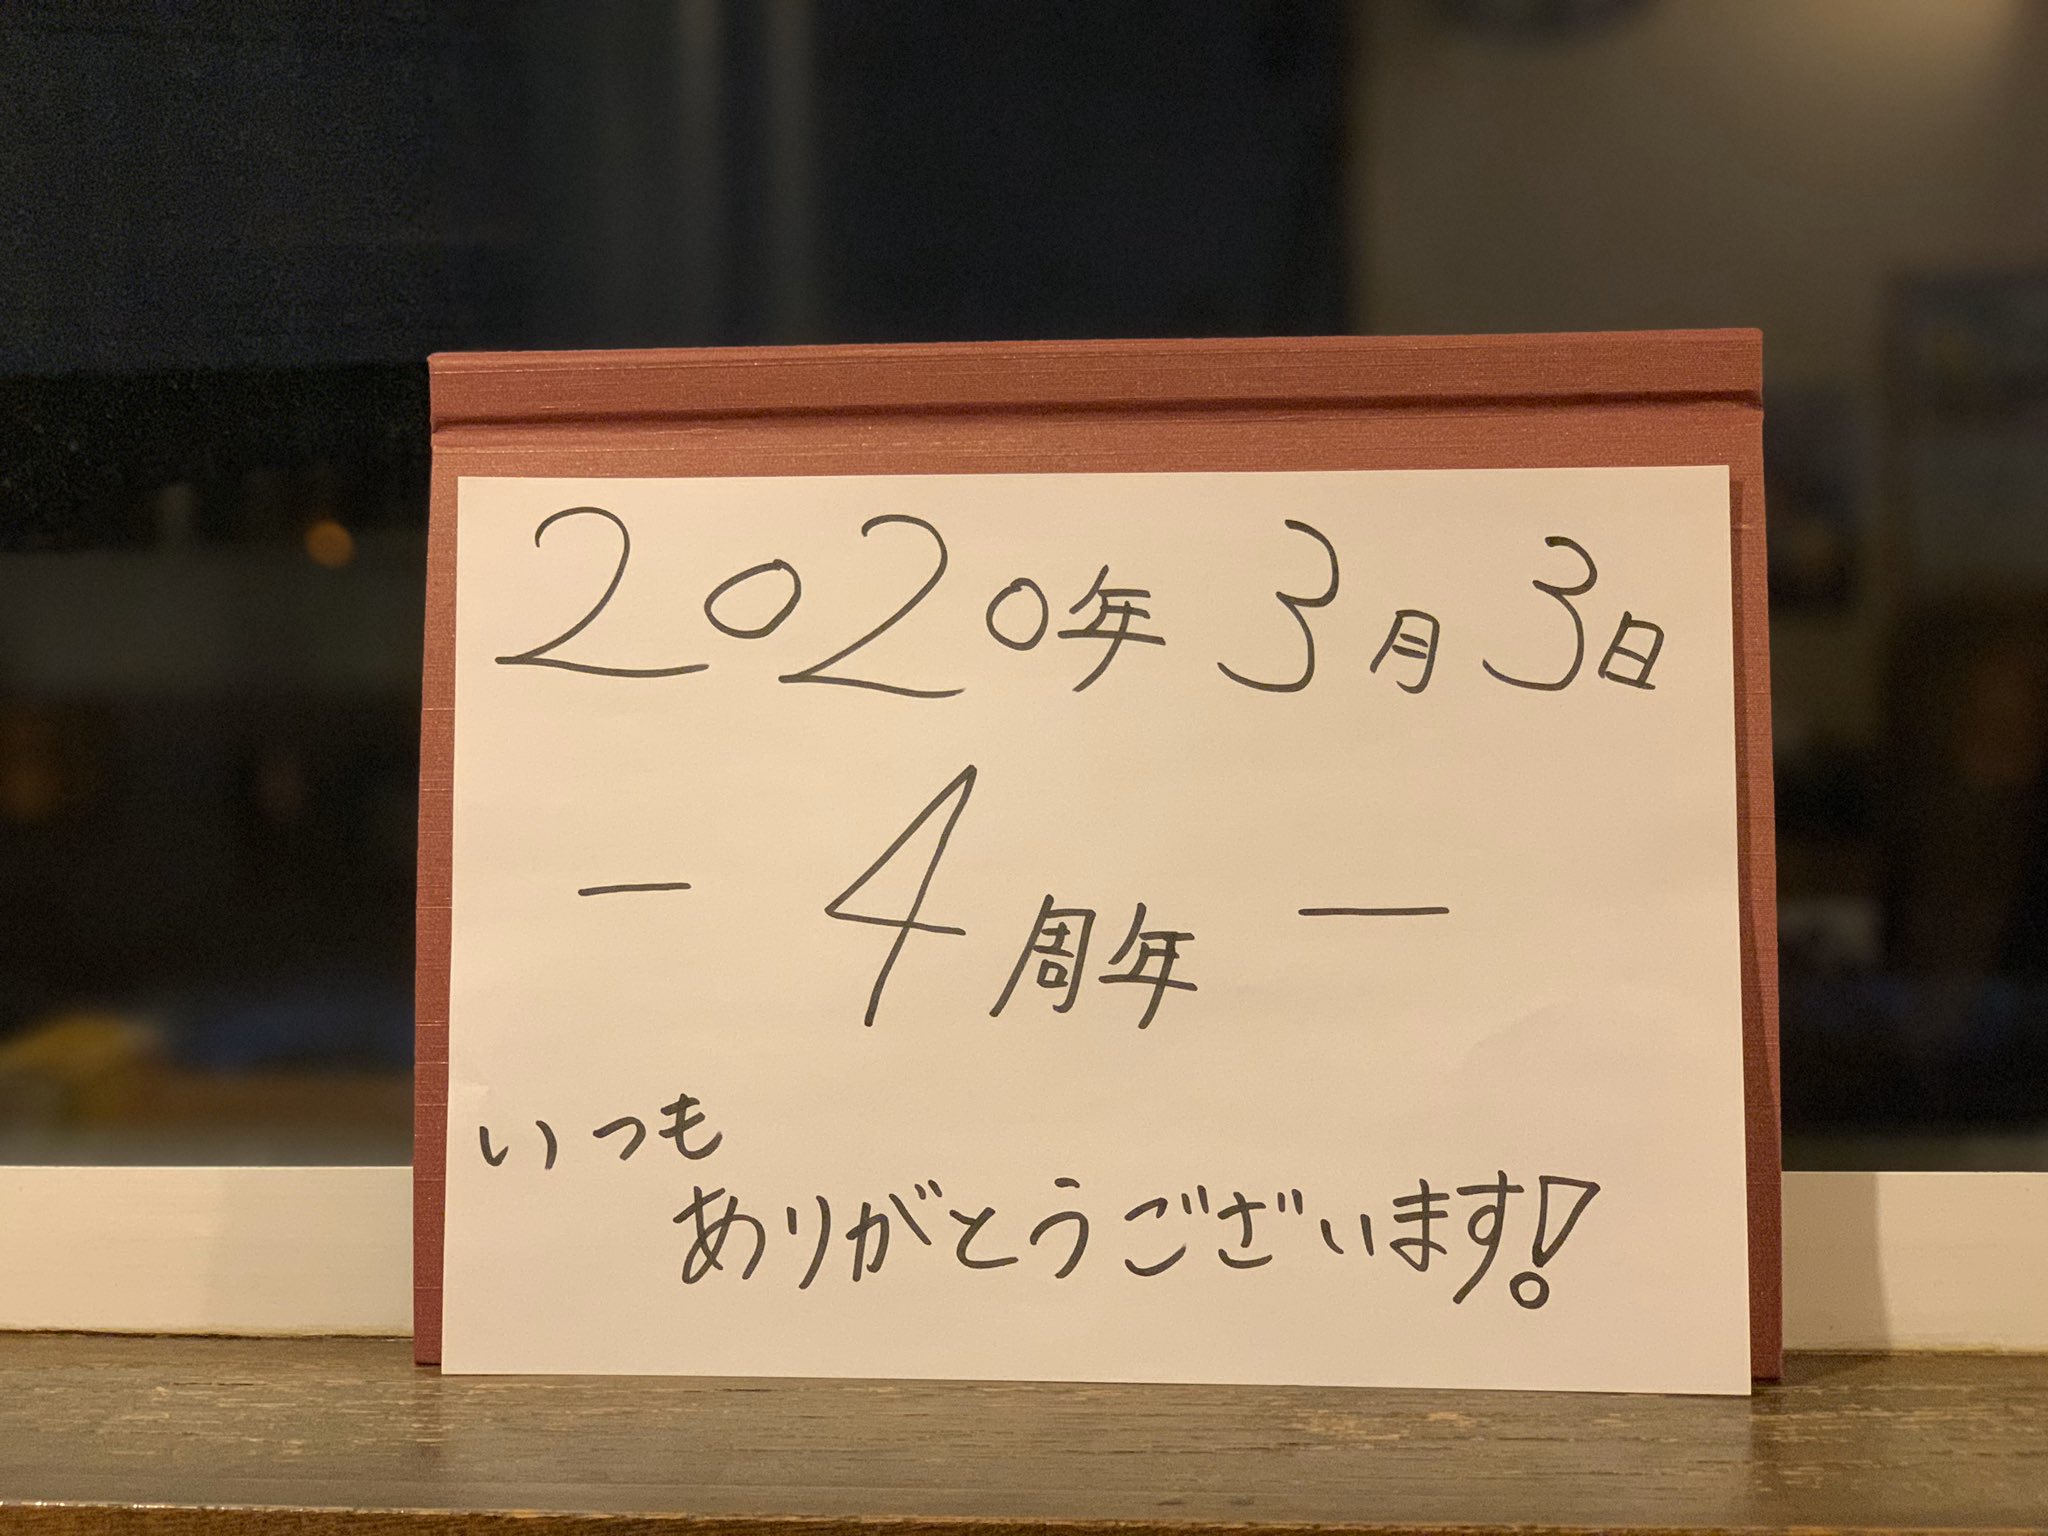 2020年3月3日
— 4周年 —
いつも
ありがとうございます!